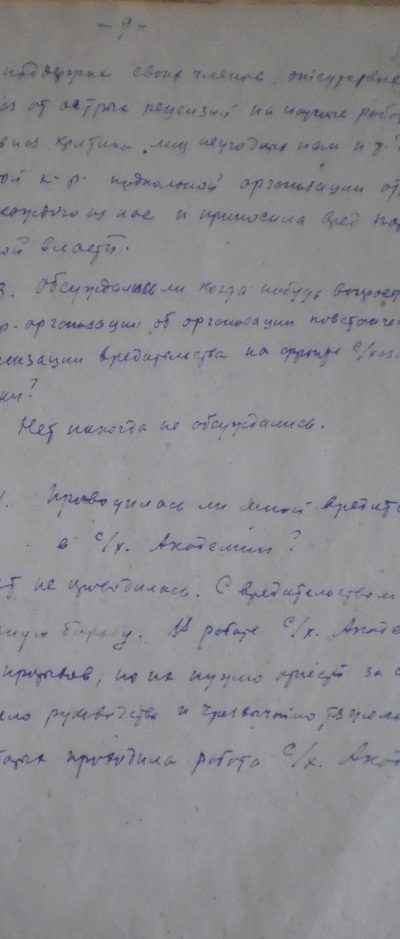 - 9 -
поддержка своих членов, отсутствие
от острых рецензий на научные рабо
критики лиц неугодных нам и
к-р. подпольной организации от
каждого из нас и приносила вред
ой власти.
3. Обсуждались ли когда нибудь вопрос
р. организации об организации повстанче
низации вредительства на фронте с/хоз
ки?
Нет никогда не обсуждались.
Проводилась ли мной вредит
в с/х. Академии?
ет не проводилась. С вредительством
борьбу. В работе с/х. Акаде
прорывов, но их нужно отнести за с
руководства и чрезвычайно
проходила работа с/х. Акад